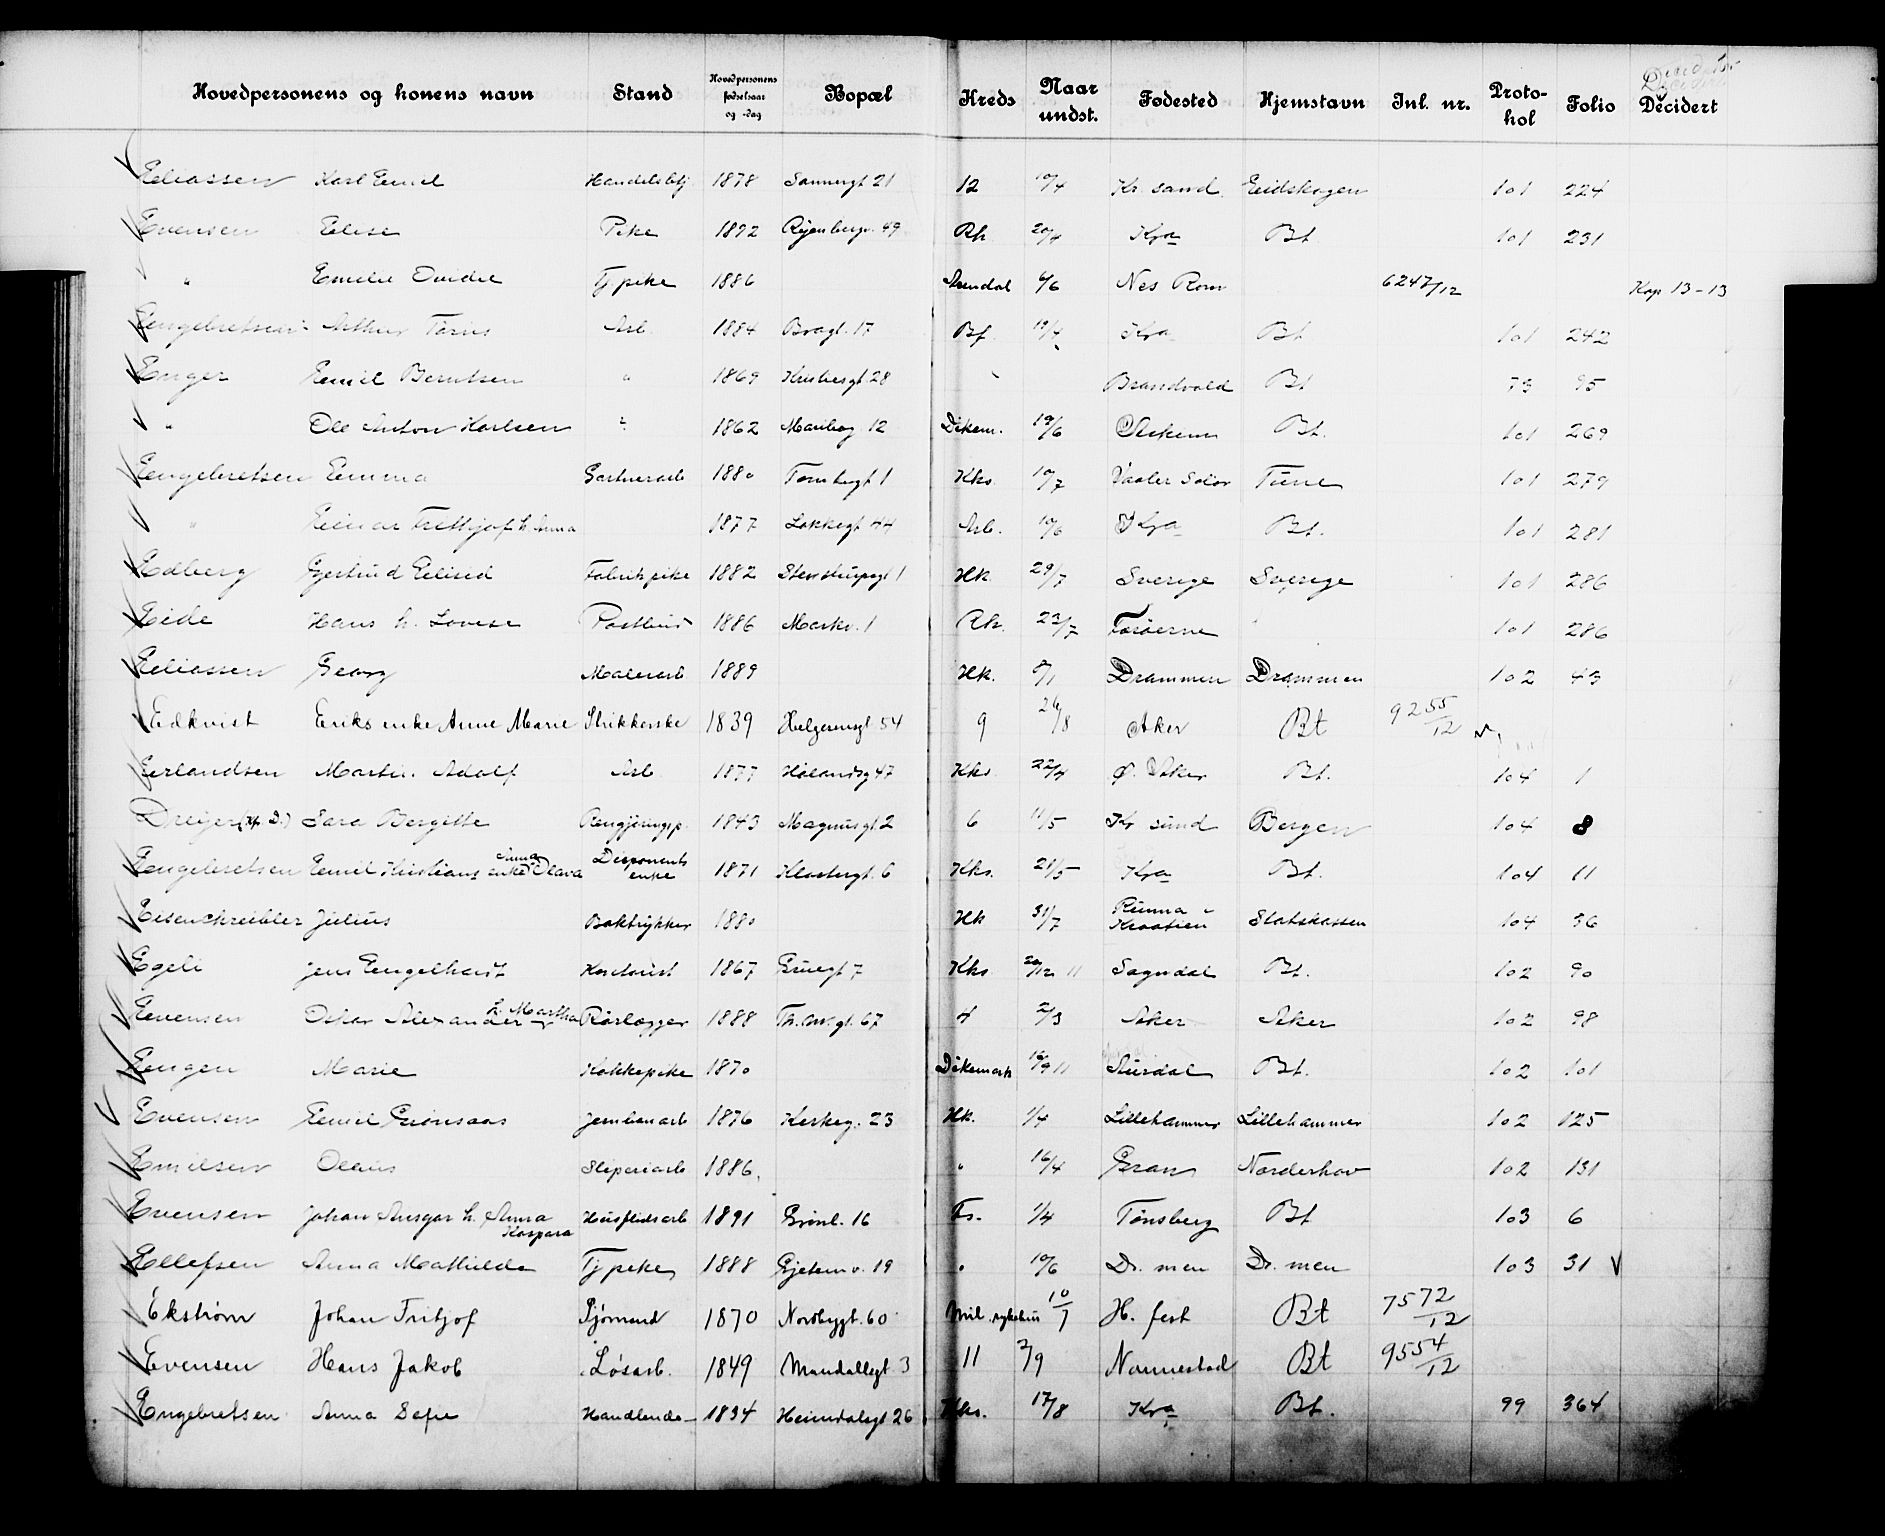 Hovedpersonens og konens navn Stand Hovedpersonens fødselsaar og -dag Bopæl Kreds Naar undst. Fødested Hjemstavn Inl. nr. Protokol Folio Decidert
Eliassen Karl Emil Handelsbtj 1878 Sannergt 21 12 10/4 Kr sand Eidskogen 101 224
Evensen Elise Pike 1892 Ryenbergv. 49 Rh 20/4 Kra Bt 101 231
" Emilie Ovidie Tj pike 1886 Arendal 6/6 Nes Rom 6247/12 Kop 13-13
Engebretsen Arthur Tarius Arb. 1884 Bragt. 17 Bf. 19/4 Kra Bt 101 242
Enger Emil Berntsen " 1869 28 Brandvold Bt 73 95
" Ole Anton Karlsen " 1862 Maribog. 12 Dikem. 19/6 Askim Bt. 101 269
Engebretsen Emma Gartnerarb 1880 Tornbergt 1 Kks. 10/7 Vaaler Solør Tune 101 279
" Einar Frithjof h. Anna 1877 Løkkegt 44 Arb. 10/6 Kra Bt. 101 281
Edberg Gjertrud Elisid Fabrikpike 1882 Stenstrupgt 1 Hk. 29/7 Sverige Sverige 101 286
Eide Hans h. Lovise Postbud 1886 Markv. 1 Rh. 22/7 Færøerne 101 286
Eliassen Georg Malerarb 1889 Hk. 8/1 Drammen Drammen 102 43
Edkvist Eriks enke Anne Marie Strikkerske 1839 Helgesensgt 54 9 26/8 Aker Bt 9255/12
Erlandsen Martin Adolf Arb 1877 Hølandsg 47 Kks. 22/4 Ø. Aker Bt. 104 1
Dreijer (Kf. D.) Sara Bergitte Rengjøringsp. 1843 Magnusgt. 2 6 11/5 Kr sund Bergen 104 8
Engebretsen Emil Kristians enke Anna Olava Disponents enke 1871 Klostergt. 6 Kks. 21/5 Kra Bt. 104 11
Eisenchreibler Julius Boktrykker 1880 Hk 31/7 Runna Kroatien Statskassen 104 36
Egeli Jens Engelhart Kontorist 1867 Gruegt 7 Kks. 20/12 11 Sogndal Bt. 102 90
Evensen Oskar Alexander h. Martha Rørlegger 1888 Th. M. gt. 67 4 2/3 Aker Aker 102 98
Engen Marie Kokkepike 1870 Dikemark 16/9 11 Aurdal Bt. 102 101
Evensen Emil Grønsaas Jernbanearb 1876 Kirkeg. 23 Hk. 1/4 Lillehammer Lillehammer 102 125
Emilsen Olaus Sliperiarb 1886. " 16/4 Gran Norderhov 102 131
Evensen Johan Ansgar h. Anna Kaspara Husflidsarb 1891 Grønl. 16 Fs. 1/4 Tønsberg Bt 103 6
Ellefsen Anna Mathilde Tj pike 1888 Gjetemv. 19 " 10/6 Dr. men Dr. men 103 31
Ekstrøm Johan Fritjof Sjømand 1870 Nordbygt. 60 Mil. sykehus 10/7 H. fest Bt 7572/12
Evensen Hans Jakob Løsarb. 1849 Mandallsgt 3 11 2/9 Nannestad Bt 9554/12
Engebretsen Anna Sofie Handlende 1834 Heimdalsgt 26 Kks. 17/8 Kra Bt. 99 364